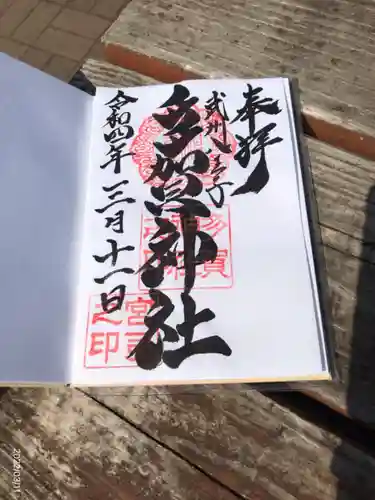 奉拝
武州八王子
多賀神社
令和四年三月十一日
多賀
神社
之印
宮司
之印